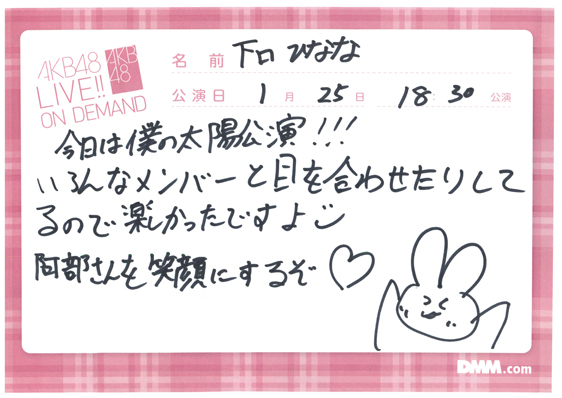 AKB48
LIVE!!
ON DEMAND
AKB
48
名前 下口ひなな
公演日 1月25日 18:30公演
今日は僕の太陽公演!!!
いろんなメンバーと目を合わせたりして
るので楽しかったですよ
阿部さんを笑顔にするぞ♡
DMM.com